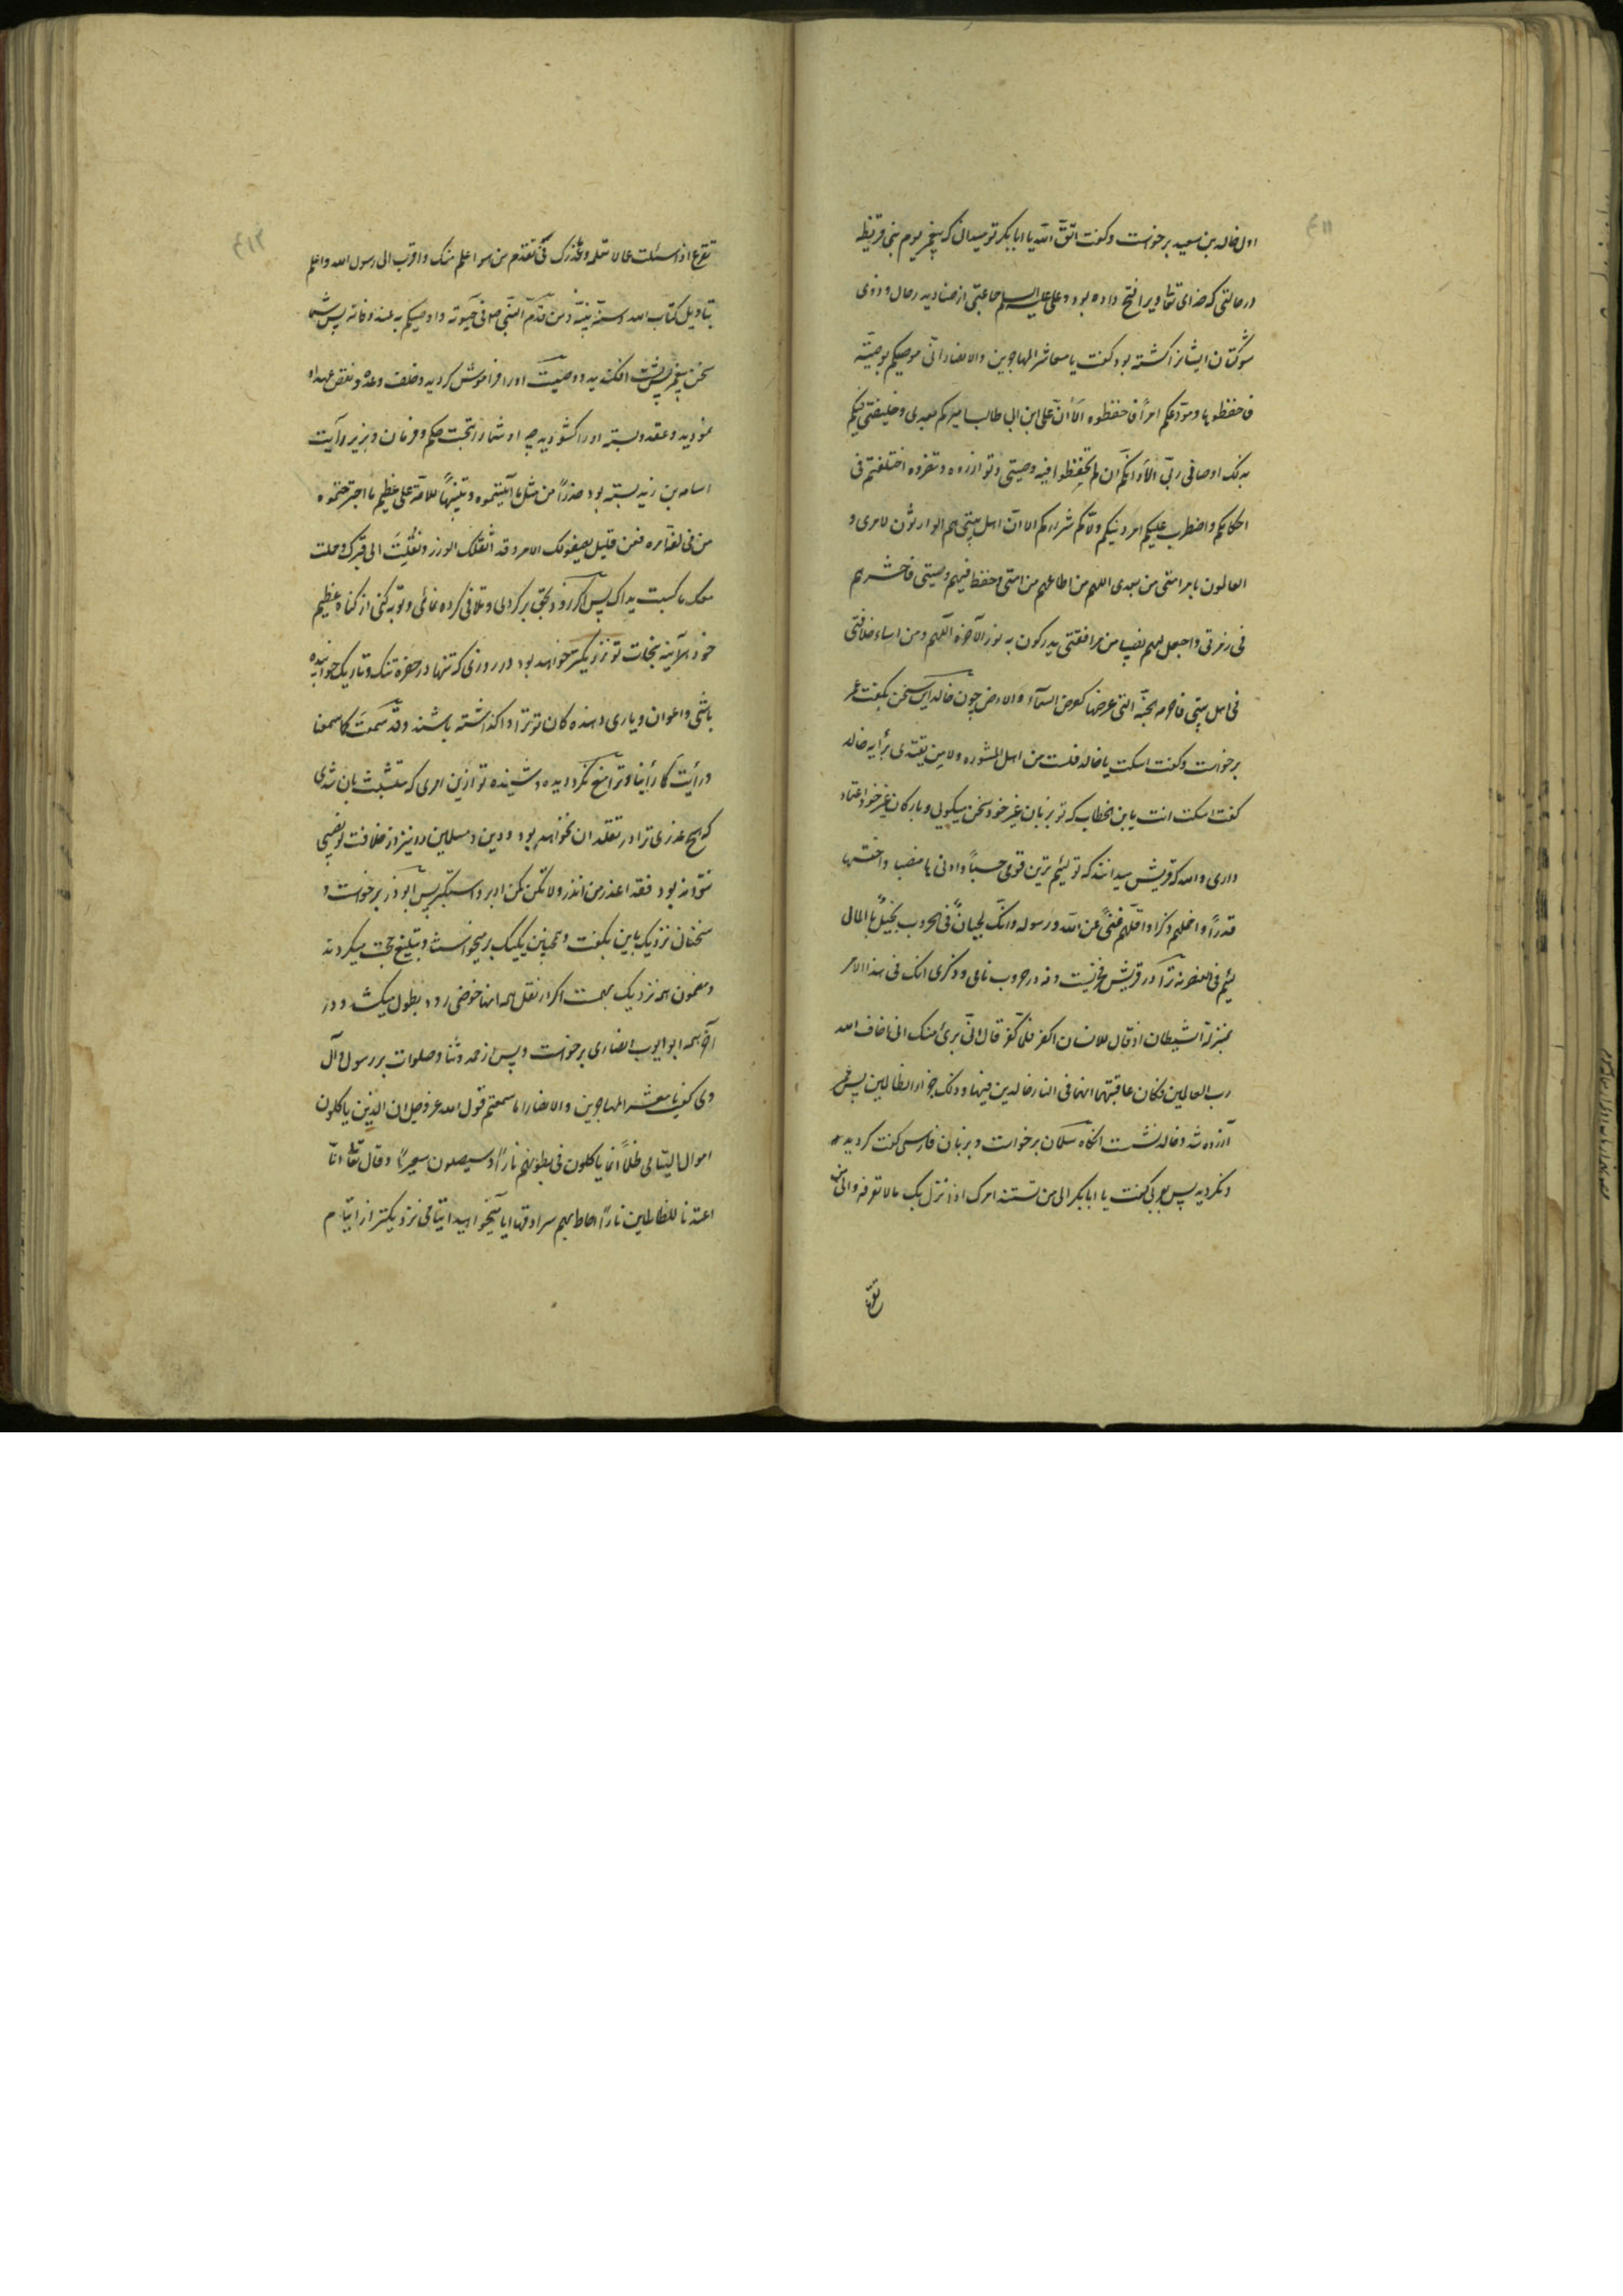 اول خالد بن سعید برخواست و گفت اتق الله یا ابا بکر تو میدانی که پیغمبر یوم بنی قریظه
در حالتی که خدای تعالی ویرا فتح داده بود و علی علیه السلم جماعتی از صنادید رجال و ذوی
شوکتان ایشانرا کشته بود گفت یا معاشر المهاجرین والانصار انی موصیکم بوصیّة
فاحفظوها و مودّعکم امراً فاحفظوه الا انّ علی ابن ابی طالب امیرکم بعدی و خلیفتی فیکم
بذلک اوصانی ربّی الا و انّکم ان لم تحفظوا فیه وصیتی و توازروه و تنصروه اختلفتم فی
احکامکم و اضطرب علیکم امر دینکم و ولّاکم شرارکم الا انّ اهل بیتی هم الوارثون لامری و
العالمون بامر امتی من بعدی اللهم من اطاعهم من امتی و حفظ فیهم وصیتی فاحشرهم
فی زمرتی واجعل لهم نصیبا من مرافقتی یدرکون به نور الآخرة اللّهم و من اساء خلافتی
فی اهل بیتی فاحرمه الجنّة التی عرضها کعرض السمآء والارض چون خالد این سخن بگفت عمر
برخواست و گفت اسکت یا خالد فلست من اهل المشوره ولا من یقتدی برأیه خالد
گفت اسکت انت یا بن الخطاب که تو بزبان غیر خود سخن میگویی و بارکان غیر خود اعتماد
داری والله که قریش میدانند که تو لئیم ترین قومی حسباً و ادنی‌ها منصبا و اخسّها
قدراً و اخملهم ذکرا و اقلّهم غنیً عن الله و رسوله و انّک لجبانٌ فی الحروب بخیلٌ بالمال
لئیم فی العنصر نه ترا در قریش فخریست و نه در حروب نامی و ذکری انک فی هذا الامر
بمنزلة الشیطان اذ قال للانسان اکفر فلمّا کفر قال انّی بریٔ منک انی اخاف الله
رب العالمین فکان عاقبتهما انهما فی النار خالدین فیها و ذلک جزاء الظالمین پس عمر
آزرده شد و خالد نشست انکاه سلمان برخواست و بزبان فارسی گفت کردید
و نکردید پس بعربی گفت یا ابا بکر الی من تستند امرک اذا نزل بک ما لا تعرفه و الی من
تفزع
تفزع اذا سئلت عما لا تعلمه و ما عذرک فی تقدّم من هو اعلم منک و اقرب الی رسول الله و اعلم
بتاویل کتاب الله و سنة نبیّه و من قدّمه النّبی ص فی حیوته و اوصیکم به عند وفاته پس شما
سخن پیغمبر پس پشت افکندید و وصیّت او را فراموش کردید و خلف وعده و نقض عهد او
نمودید و عقد بسته او را کشودید چه او شما را تحت حکم و فرمان و بزیر رایت
اسامه بن زید بسته بود حذراً من مثل ما آتیتموه و تنبیهاً للامّة علی عظیم ما اجترحتموه
من مخالفة امره فعن قلیل یصفو لک الامر و قد اثقلک الوزر و نقلت الی قبرک و حملت
معک ما کسبت یداک پس اگر زود بحق بر کردی و تلافی کرده نمائی و توبه کنی از کناه عظیم
خود هرآینه بنجات تو نزدیکتر خواهد بود در روزی که تنها در حفره تنک و تاریک خوابیده
باشی و اعوان و یاری دهنده کان تو ترا واکذاشته باشند و قد سمعت کما سمعنا
و رأیت کما رأینا و ترا منع نکرد دیده و شنیده تو ازین امری که متشبّث بان شدی
که هیچ عذری ترا در تقلد ان نخواهد بود و دین و مسلمین را نیز از خلافت تو نصیبی
نتواند بود فقد اعذر من انذر و لا تکن کمن ادبر و استکبر پس ابوذر برخواست و
سخنان نزدیک باین بگفت و همچنین یکیک برمیخواست و تبلیغ حجت میکردند
و مضمون همه نزدیک بهمست اکر در نقل همه انها خوضی رود بطول میکشد و در
آخر همه ابو ایوب انصاری برخواست و پس از حمد و ثنا و صلوات بر رسول و آل
وی گفت یا معشر المهاجرین و الانصار اما سمعتم قول الله عز و جل ان الذین یاکلون
اموال الیتامی ظلماً انما یاکلون فی بطونهم ناراً و سیصلون سعیراً و قال تعالی انّا
اعتدنا للظالمین ناراً احاط بهم سرادقها ایا میخواهید ایتامی نزدیکتر از ایتام